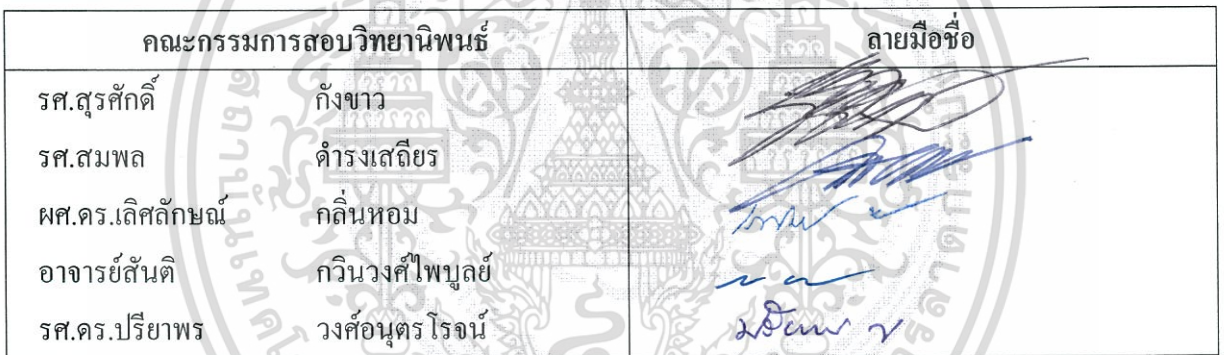 คณะกรรมการสอบวิทยานิพนธ์ ลายมือชื่อ
รศ.สุรศักดิ์ กังขาว
รศ.สมพล ดำรงเสถียร
ผศ.ดร.เลิศลักษณ์ กลิ่นหอม
อาจารย์สันติ กวินวงศ์ไพบูลย์
รศ.ดร.ปรียาพร วงศ์อนุตรโรจน์